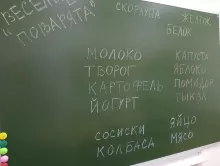 ВЕСЕЛЫЕ
"ПОВАРЯТА"
СКОРЛУПА ЖЕЛТОК
БЕЛОК
МОЛОКО КАПУСТА
ТВОРОГ ЯБЛОКО
КАРТОФЕЛЬ ПОМИДОР
ЙОГУРТ ТЫКВА
СОСИСКИ ЯЙЦО
КОЛБАСА МЯСО